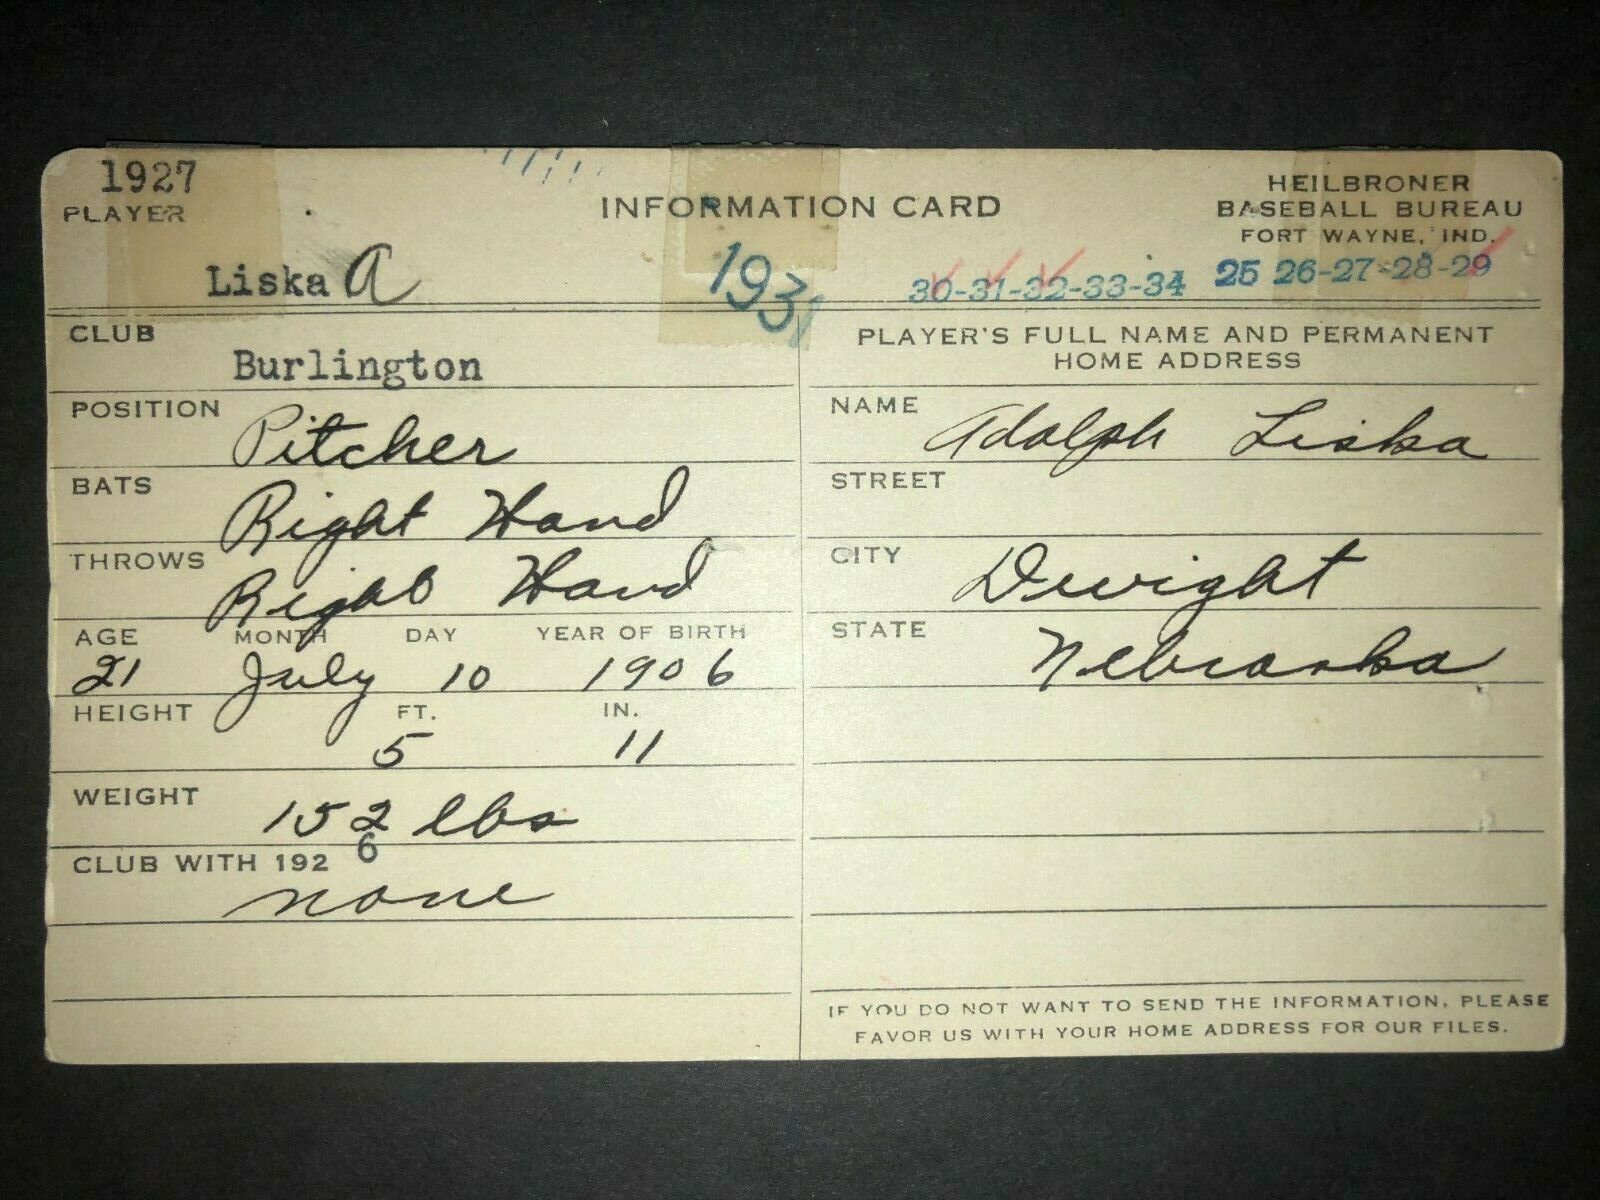 1927
PLAYER
INFORMATION CARD
HEILBRONER
BASEBALL BUREAU
FORT WAYNE, IND.
Liska A
1931
30-31-32-33-34 25 26-27-28-29
CLUB
Burlington
POSITION
Pitcher
BATS
Right Hand
THROWS
Right Hand
AGE MONTH DAY YEAR OF BIRTH
21 July 10 1906
HEIGHT FT. IN.
5 11
WEIGHT
152 lbs
CLUB WITH 192 6
none
PLAYER'S FULL NAME AND PERMANENT
HOME ADDRESS
NAME Adolph Liska
STREET
CITY Dwight
STATE Nebraska
IF YOU DO NOT WANT TO SEND THE INFORMATION, PLEASE
FAVOR US WITH YOUR HOME ADDRESS FOR OUR FILES.